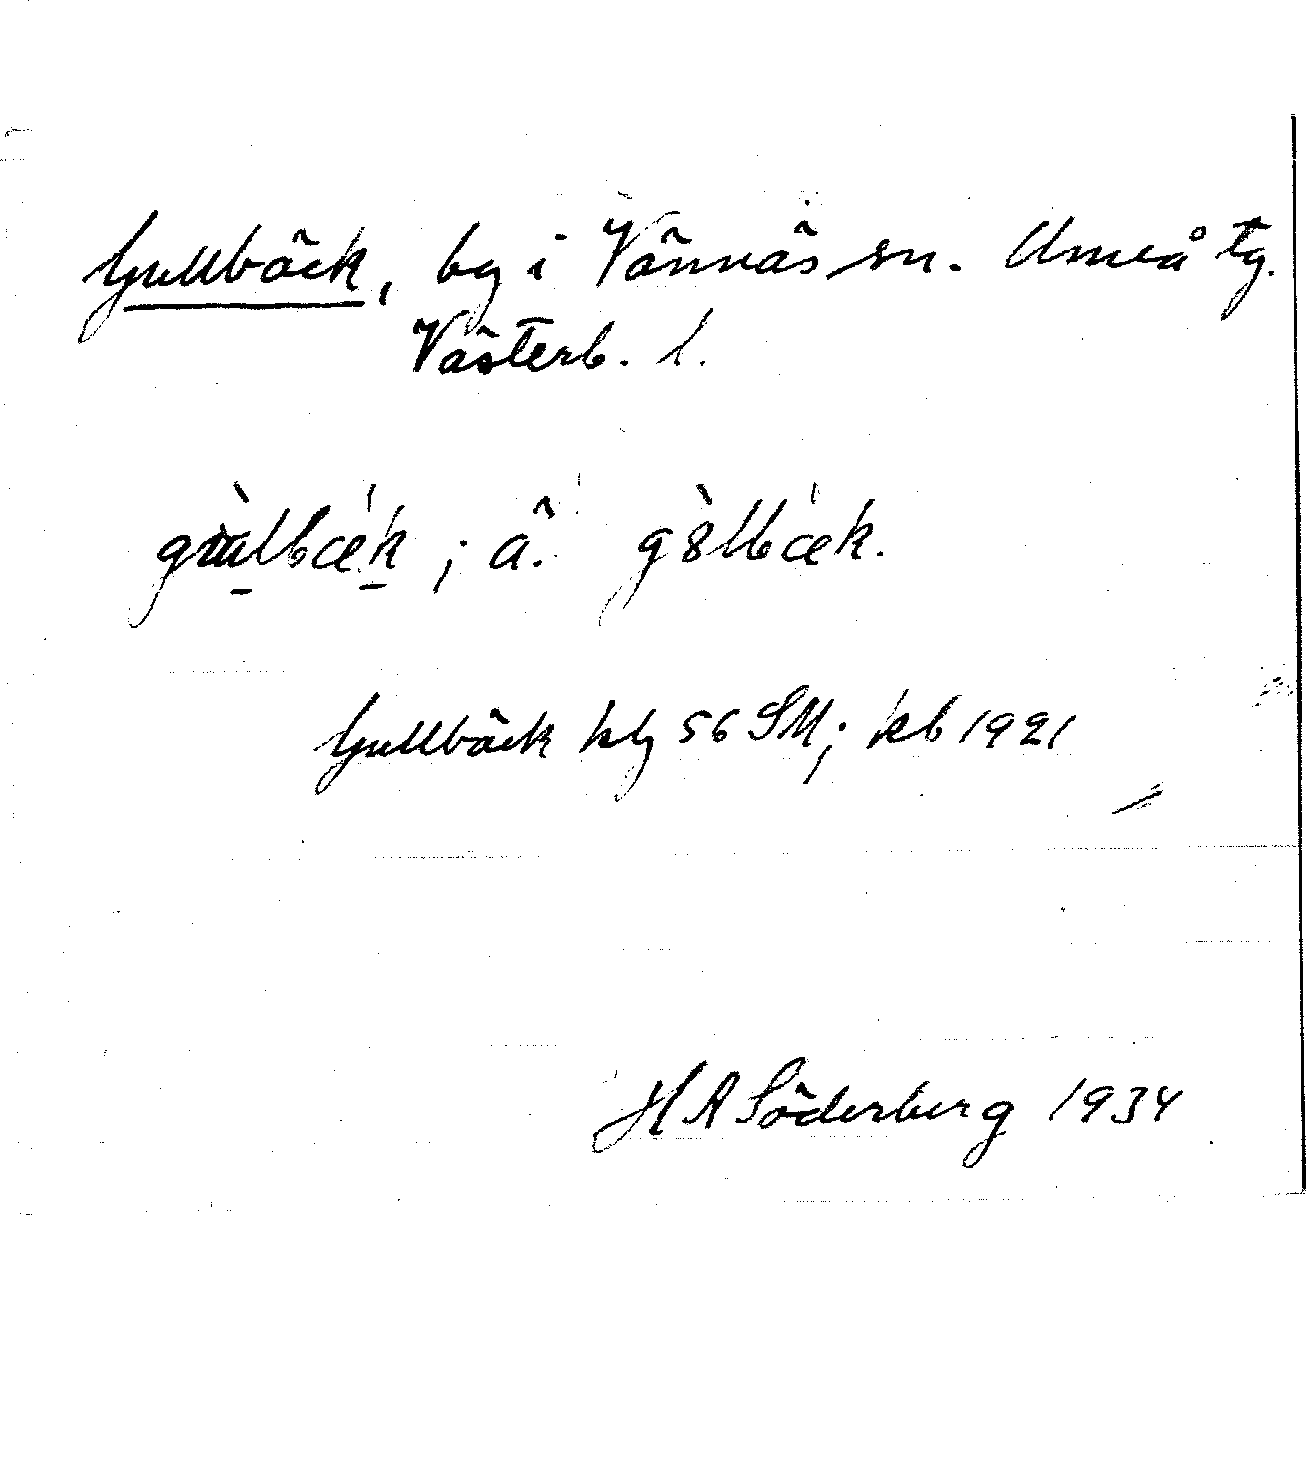 Gullbäck, by i Vännäs sn. Umeå tg.
Västerb. l.
gùllbæk; ä. g8̀llbæk.
Gullbäck kbg 56 SM; kb 1921
H A Söderberg 1934